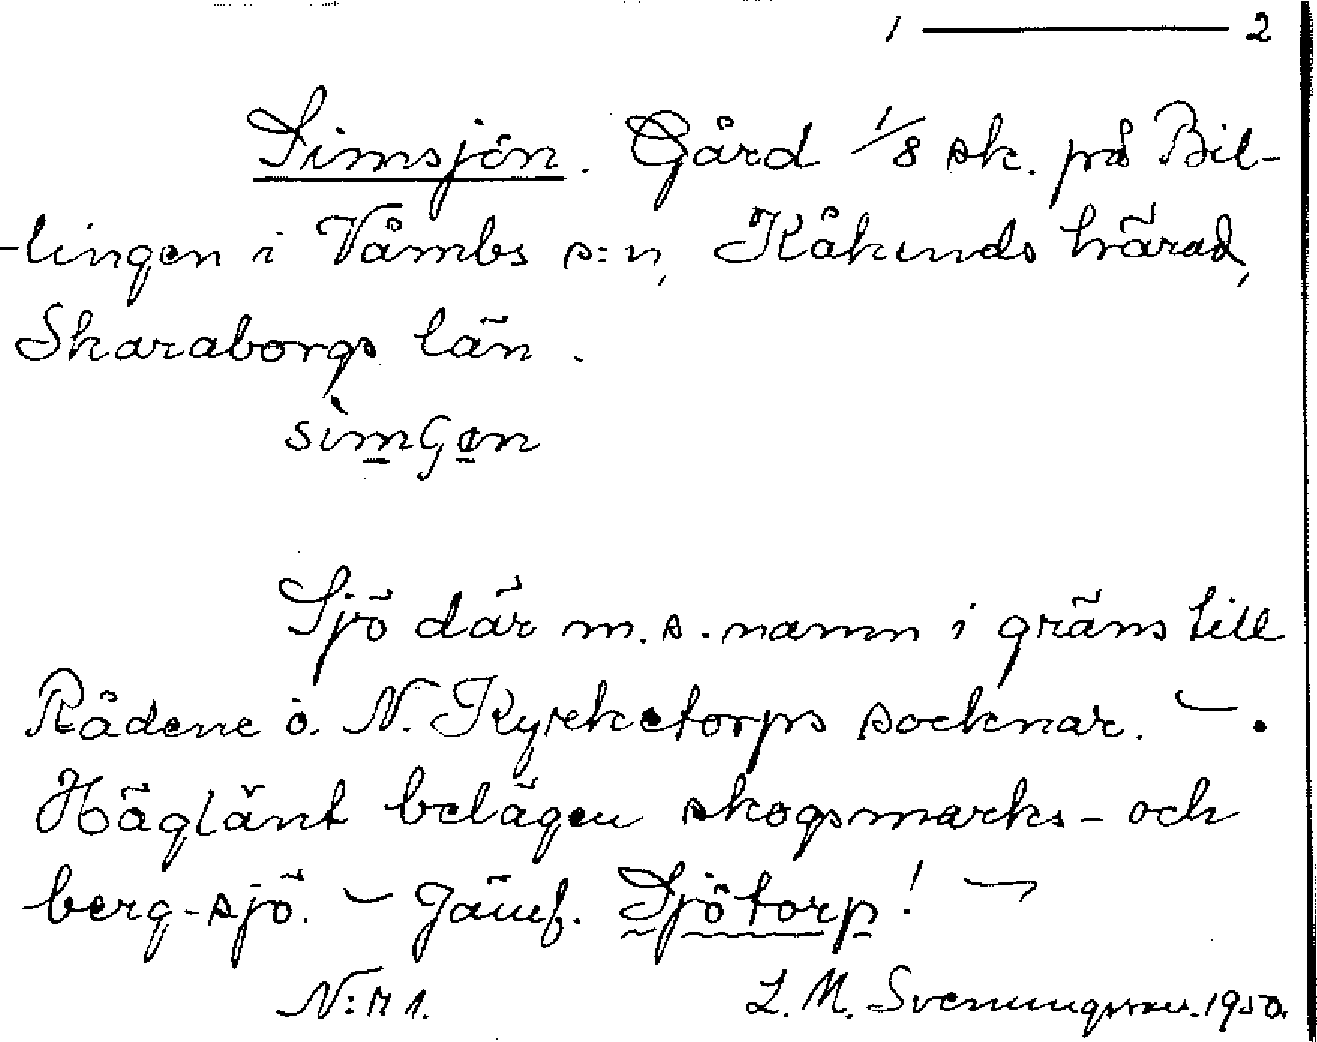 1 — 2
Simsjön. Gård 1/8 sk. på Bil-
-lingen i Våmbs s:n, Kåkinds härad,
Skaraborgs län.
sìmGen
Sjö där m. s. namn i gräns till
Rådene o. N. Kyrketorps socknar. —.
Höglänt belägen skogsmarks- och
berg-sjö. — Jämf. Sjötorp! —
N:r 1.
L. M. Svenungsson. 1950.